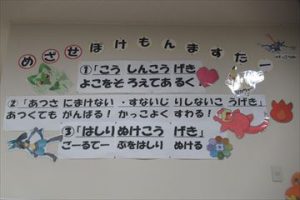 めざせぽけもんますたー
①「こう しんこう げき」
よこをそ ろえてある く
②「あつさ にまけない・すないじ りしないこ うげき」
あつくても がんばる! かっこよく すわる!
③「はしり ぬけこう げき」
ごーるてー ぷをはしり ぬける